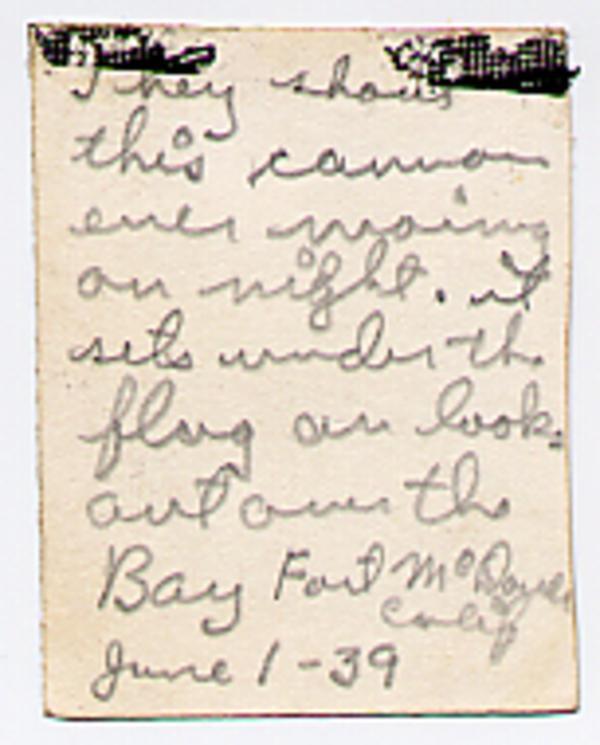 They shout
this cannon
ever moing
an night. it
sets under the
flag an look
out over the
Bay Fort McDowell
Calif
June 1-39